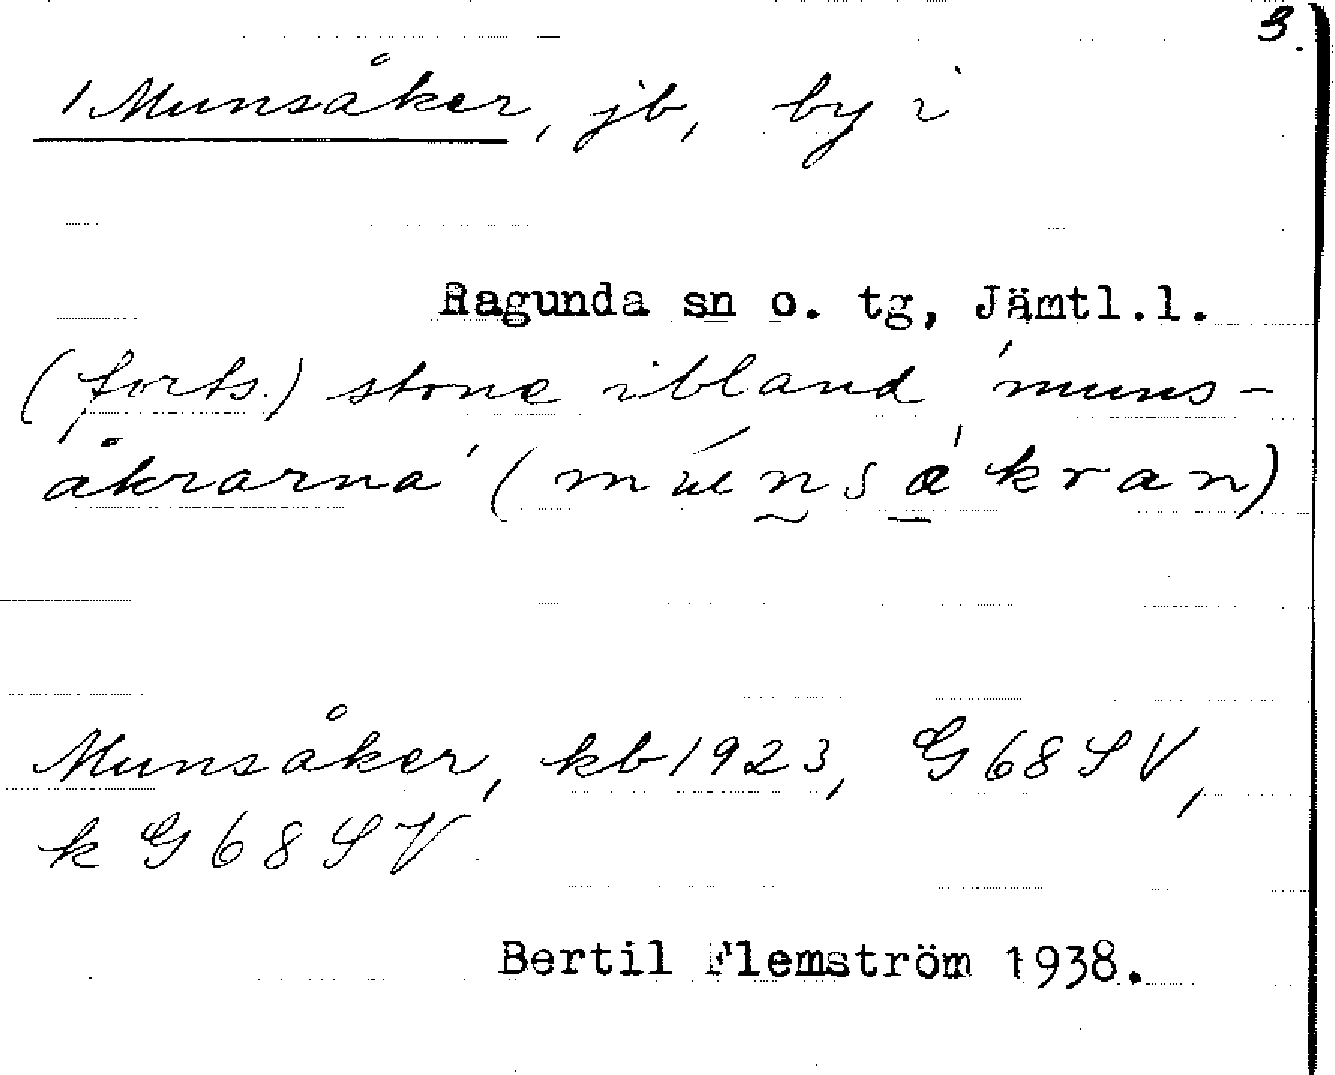 3.
1 Munsåker, jb, by i
Ragunda sn o. tg, Jämtl.l.
(forts.) stone ibland 'muns-
åkrarna' (
Munsåker, kb 1923, G 68 SV,
k G 68 SV
Bertil Flemström 1938.